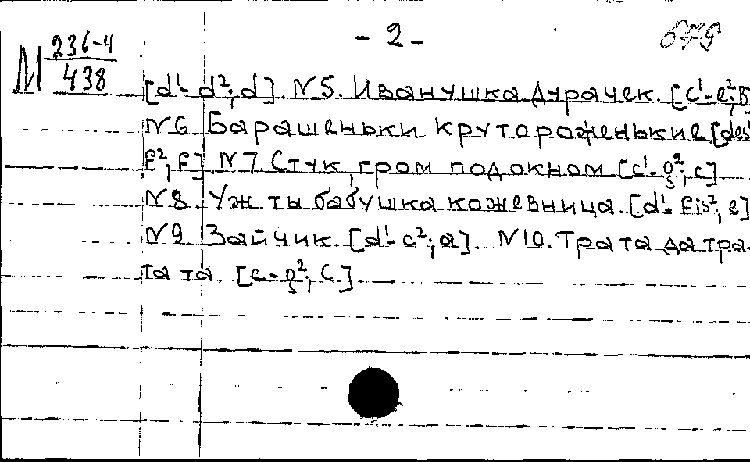 - 2 -
М 236-4
438
[d¹-d²; d]. N5. Иванушка Дурачек. [c¹-e²; g
N6 Барашеньки крутороженькие [des¹
f², f] N7. Стук, гром под окном [c¹-g²; c]
N8. Уж ты бабушка кожевница. [d¹-fis²; e]
N9 Зайчик. [d¹-c²; a]. N10. Трата да тра-
та та. [c-g²; c.]